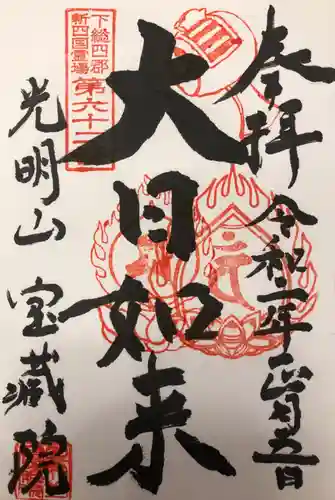 奉拝
令和二年正月五日
大日如来
下総四郡
新四国霊場
第六十二
光明山
宝蔵院